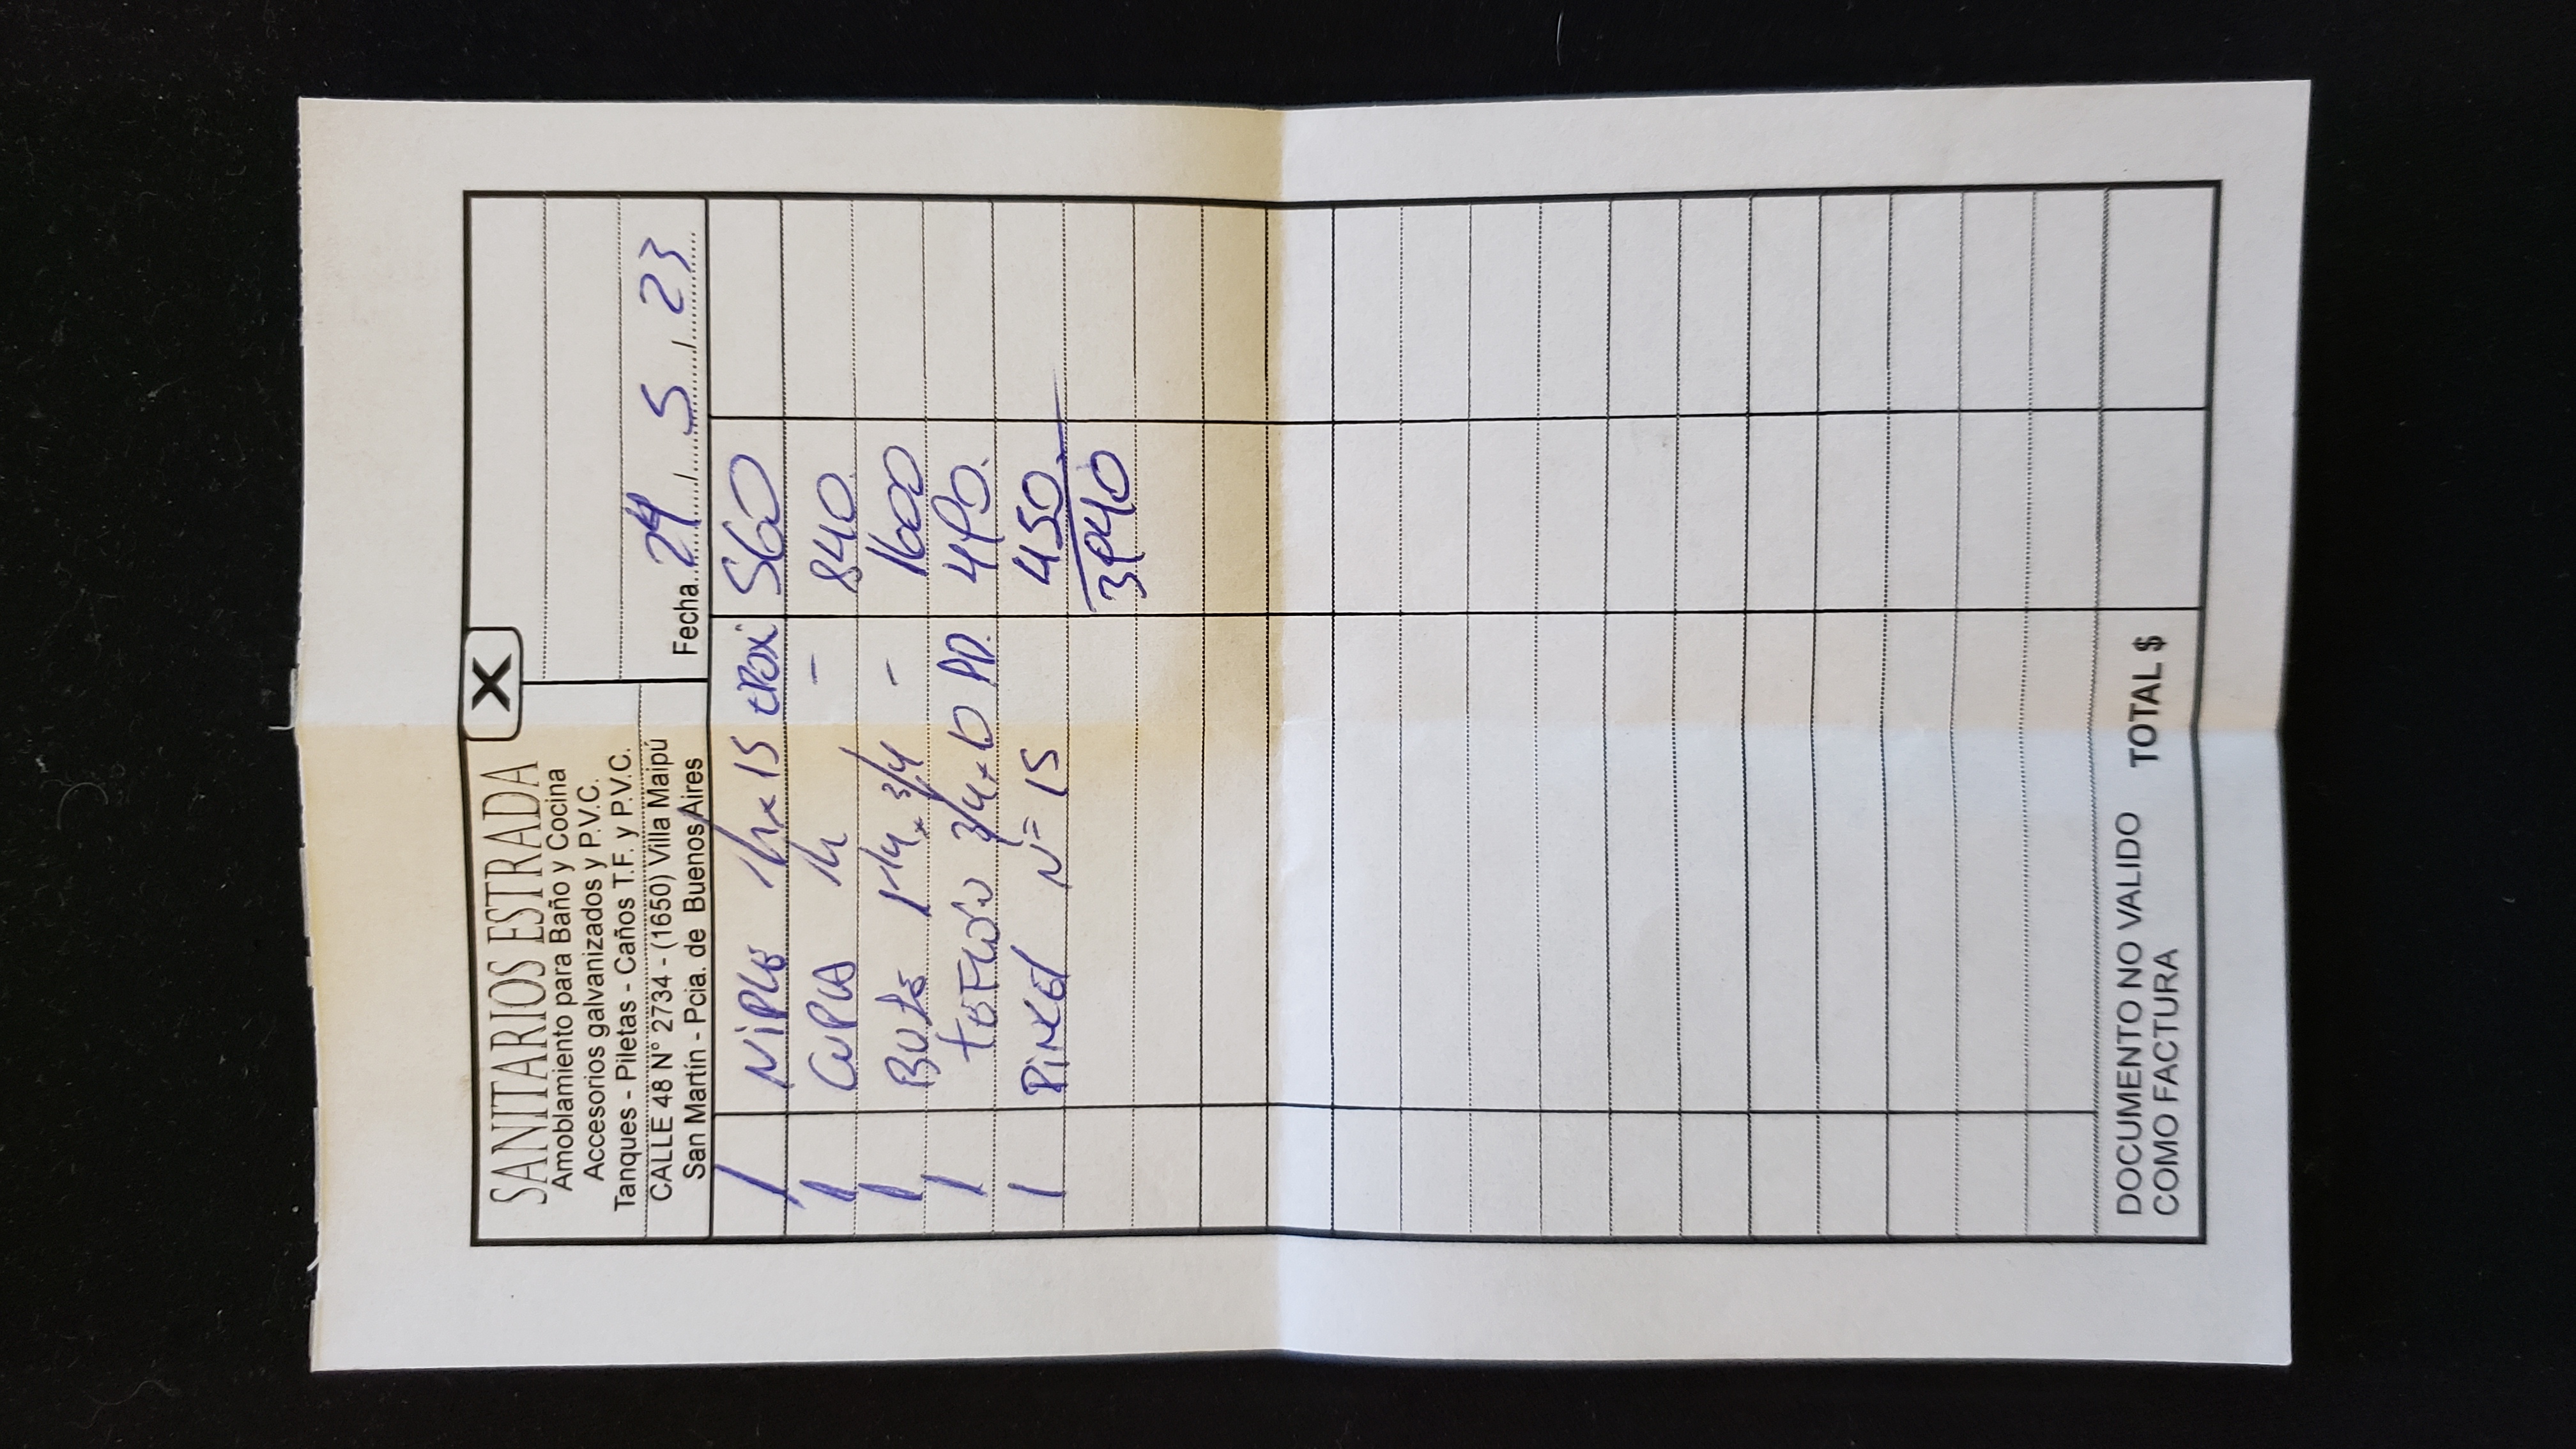 SANITARIOS ESTRADA
X
Amoblamiento para Baño y Cocina
Accesorios galvanizados y P.V.C.
Tanques - Piletas - Caños T.F. y P.V.C.
CALLE 48 N° 2734 - (1650) Villa Maipú
San Martín - Pcia. de Buenos Aires
Fecha 24 / 5 / 23
1 NiPLE x 15 EPOXi 560
1 CUPLA - 840.
1 BUJE 3/4 - 1600
1 TEFLÓN 3/4 x 10 490.
1 PiNCEl Nº 15 450
3940
DOCUMENTO NO VALIDO
COMO FACTURA
TOTAL $